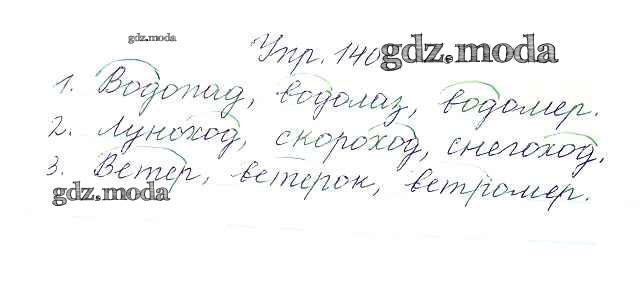 gdz.moda
Упр. 140 gdz.moda
1. Водопад, водолаз, водомер.
2. Луноход, скороход, снегоход.
3. Ветер, ветерок, ветромер.
gdz.moda